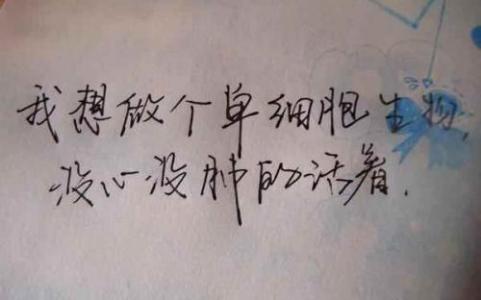 我想做个单细胞生物，
没心没肺的活着.